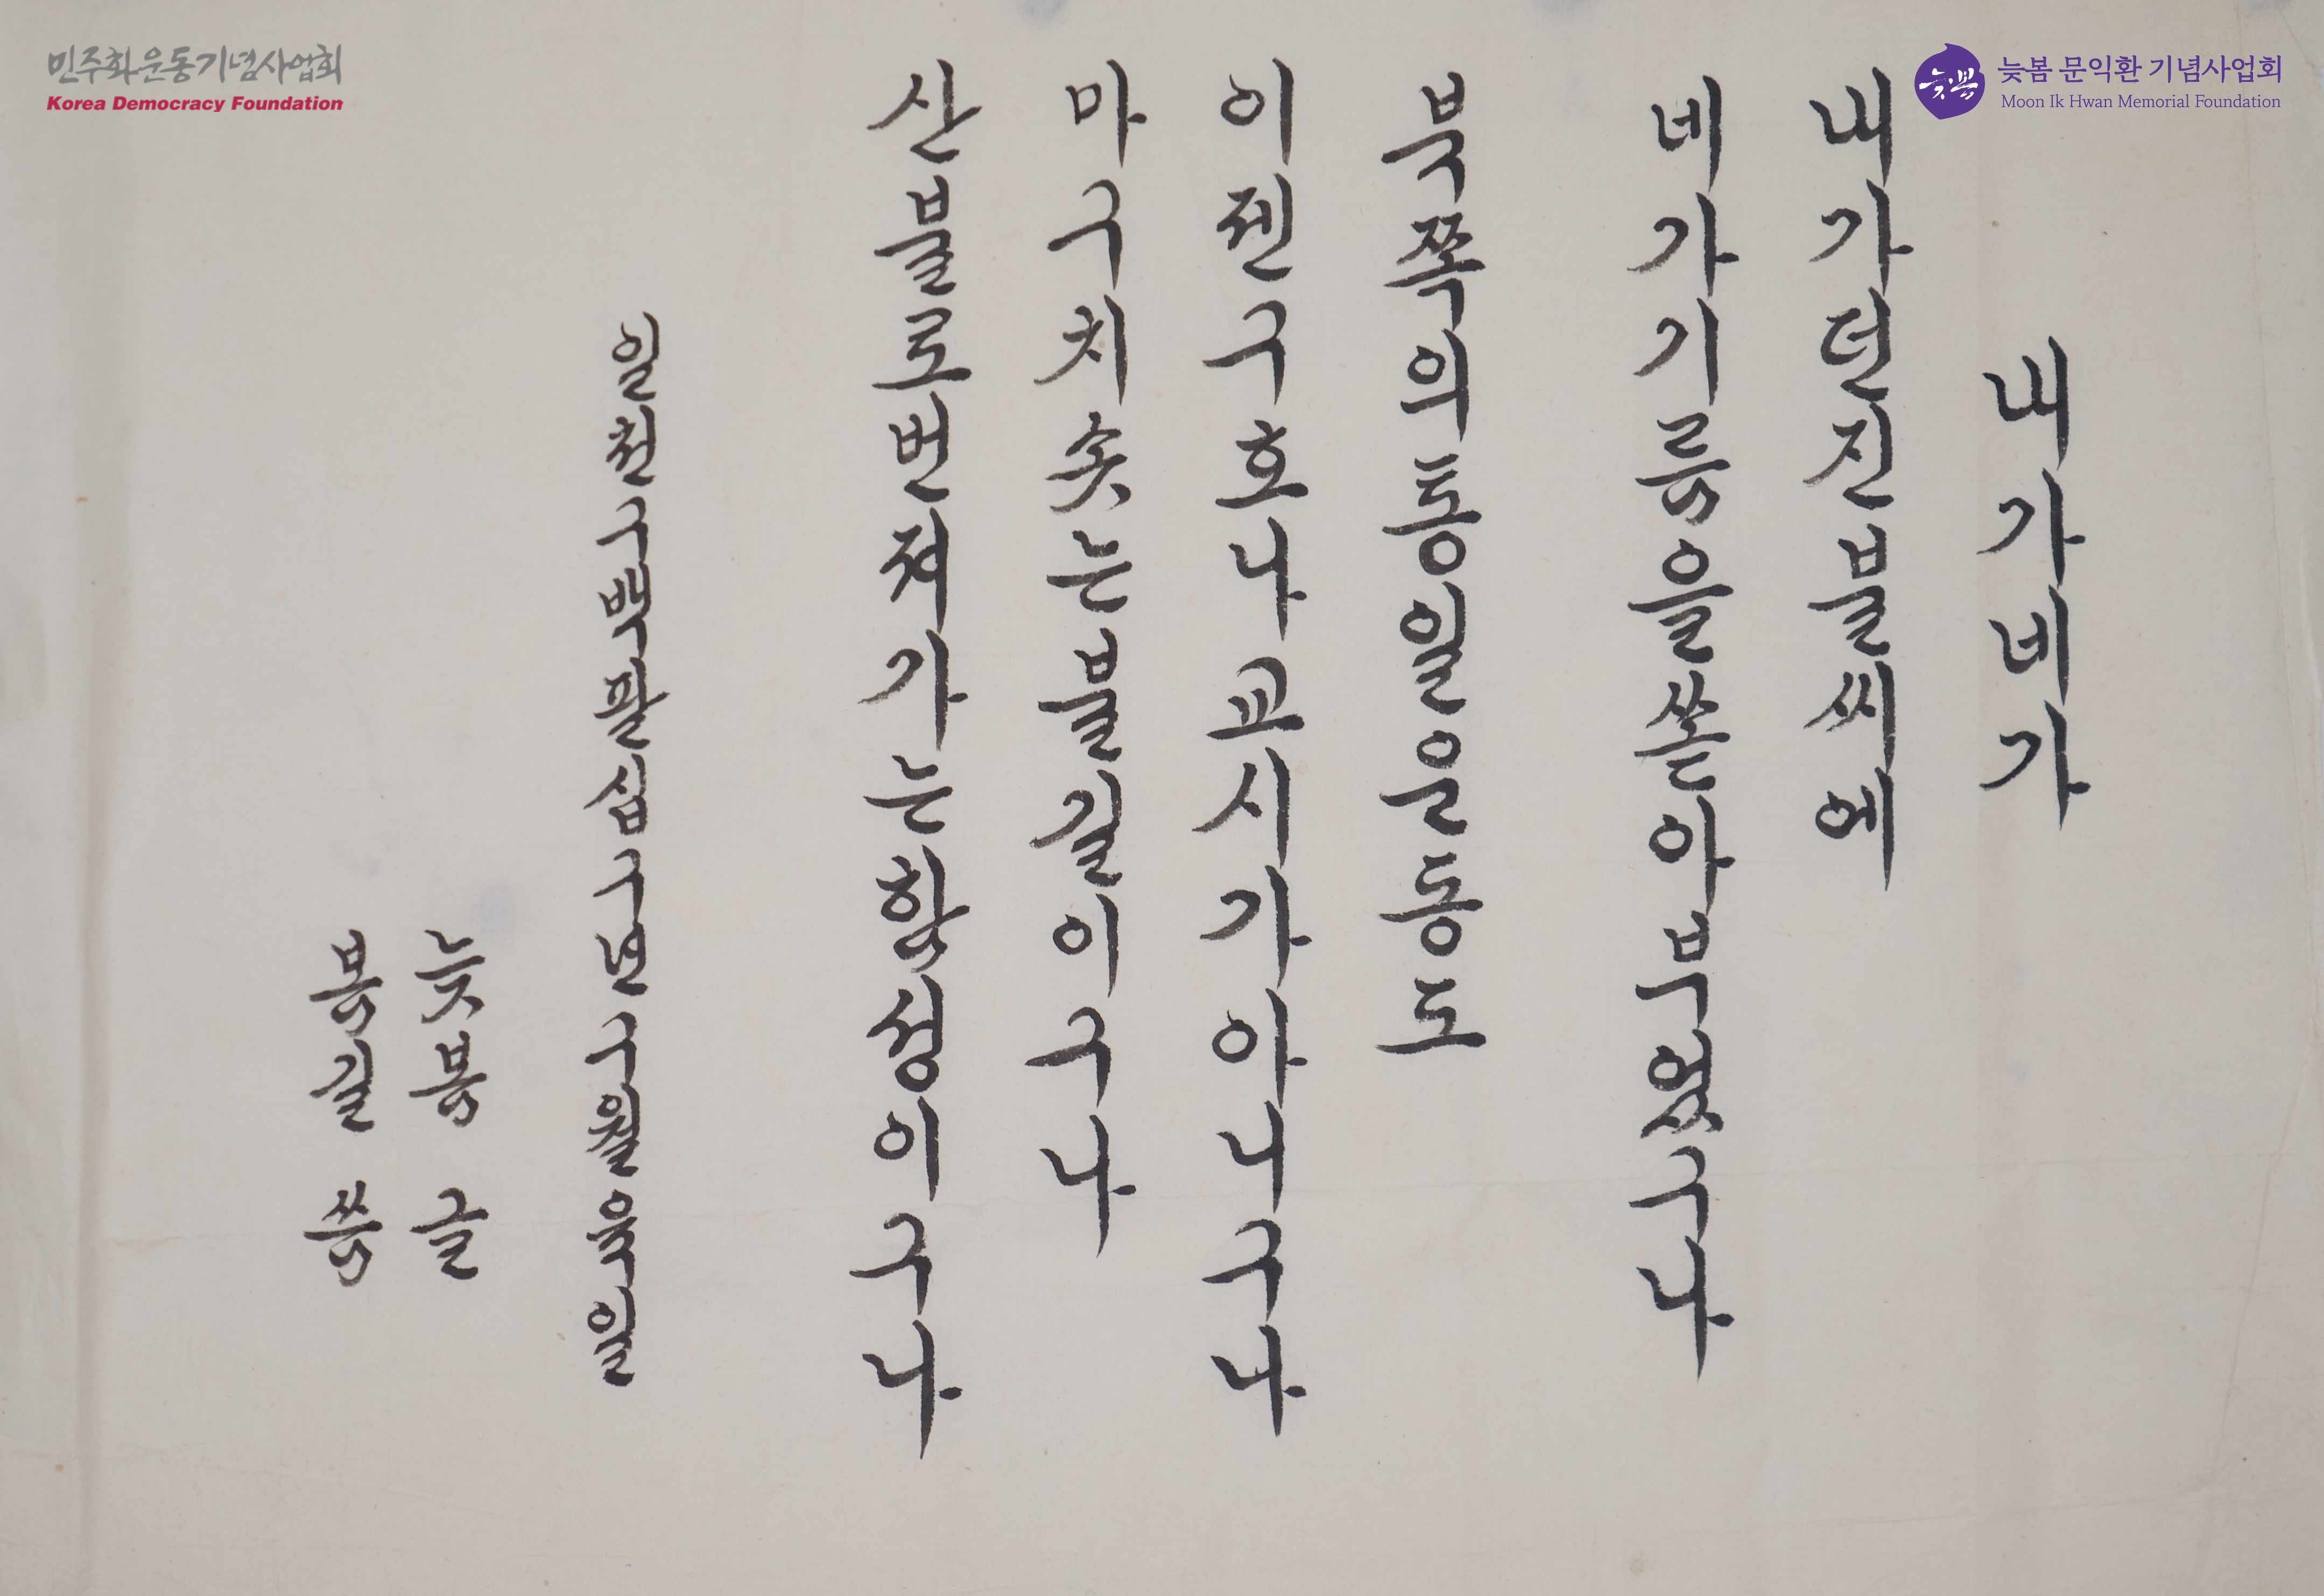 민주화운동기념사업회
Korea Democracy Foundation
늦봄
늦봄 문익환 기념사업회
Moon Ik Hwan Memorial Foundation
내가 네가
내가 던진 불씨에
네가 기름을 쏟아부었구나
북쪽의 통일운동도
이젠 구호나 교시가 아니구나
마구 치솟는 불길이구나
산불로 번져가는 함성이구나
일천구백팔십구년 구월 육일
늦봄 글
봄길 씀